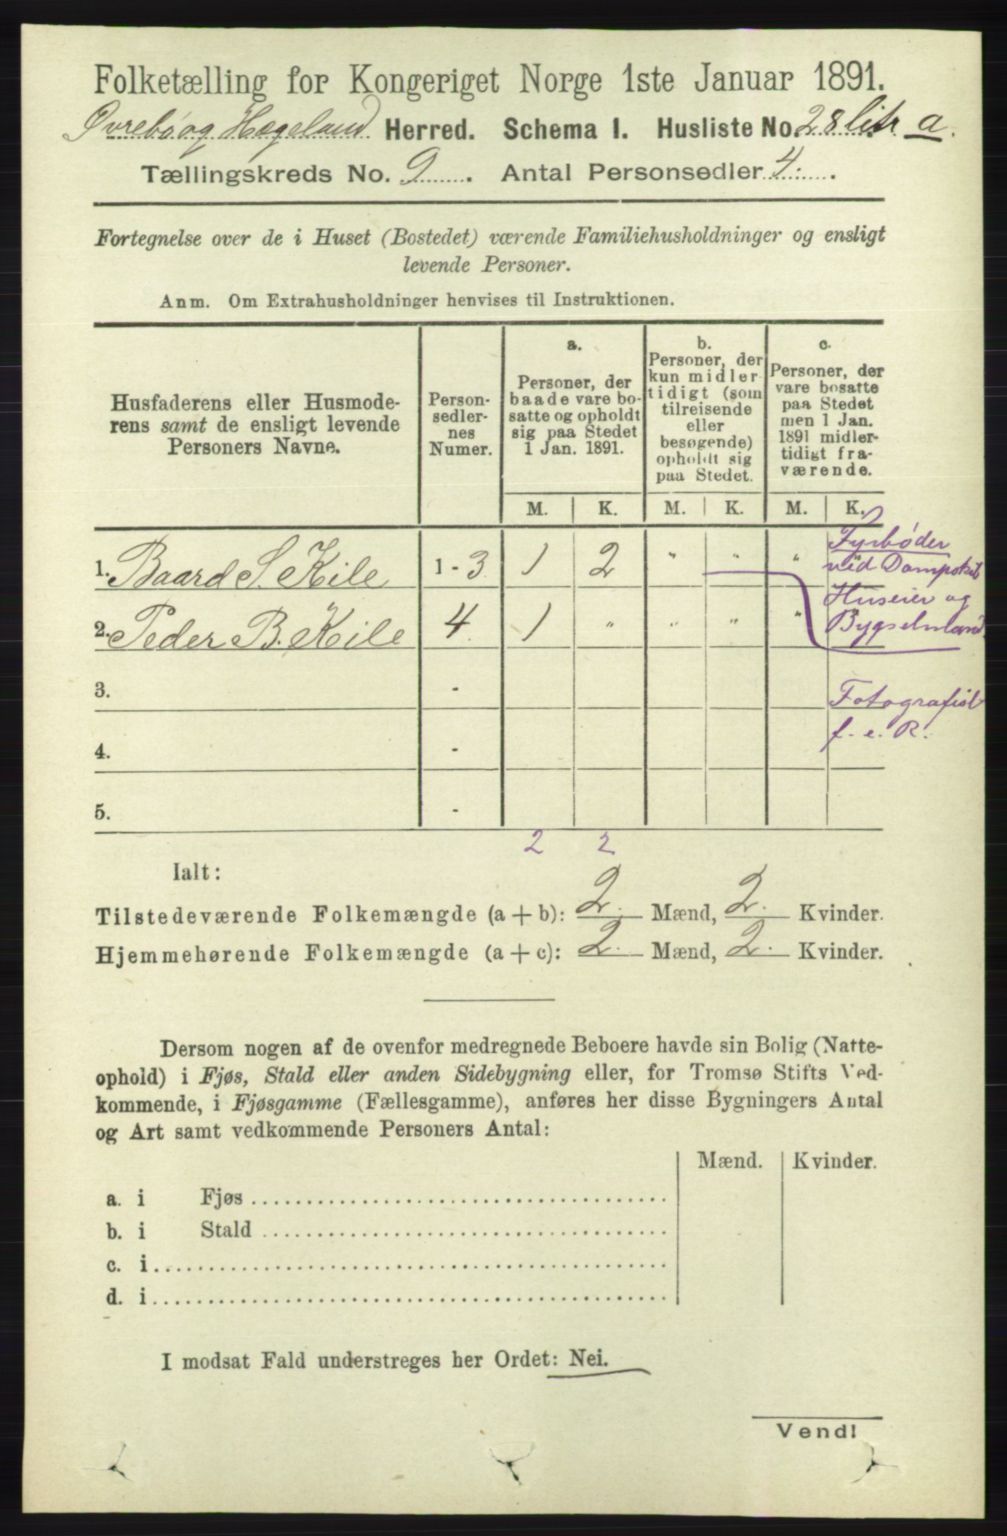 Folketælling for Kongeriget Norge 1ste Januar 1891.
Øvrebø og Hægeland Herred. Schema I. Husliste No. 28 litr a.
Tællingskreds No. 9. Antal Personsedler 4.
Fortegnelse over de i Huset (Bostedet) værende Familiehusholdninger og ensligt
levende Personer.
Anm. Om Extrahusholdninger henvises til Instruktionen.
Husfaderens eller Husmode-
rens samt de ensligt levende
Personers Navne.
Person-
sedler-
nes
Numer.
a.
Personer, der
baade vare bo-
satte og opholdt
sig paa Stedet
1 Jan. 1891.
b.
Personer, der
kun midler-
tidigt (som
tilreisende
eller
besøgende)
opholdt sig
paa Stedet.
c.
Personer, der
vare bosatte
paa Stedet
men 1 Jan.
1891 midler-
tidigt fra-
værende.
M. K. M. K. M. K.
1. Baard S. Kile 1 - 3 1 2 " " "
Fyrbøder
ved Dampskib
2. Peder B. Kile 4 1 " " " "
Huseier og
Bygselmand
3. -
Fotografist
f. e. R.
4. -
5. -
2 2
Ialt:
Tilstedeværende Folkemængde (a + b): 2. Mænd, 2. Kvinder.
Hjemmehørende Folkemængde (a + c): 2. Mænd, 2. Kvinder.
Dersom nogen af de ovenfor medregnede Beboere havde sin Bolig (Natte-
ophold) i Fjøs, Stald eller anden Sidebygning eller, for Tromsø Stifts Ved-
kommende, i Fjøsgamme (Fællesgamme), anføres her disse Bygningers Antal
og Art samt vedkommende Personers Antal:
Mænd. Kvinder.
a. i Fjøs
b. i Stald
c. i
d. i
I modsat Fald understreges her Ordet: Nei.
Vend!